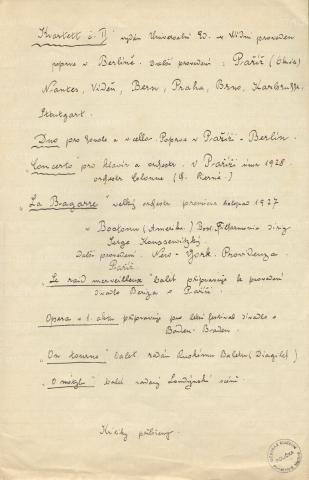 Kvartett č. II vydán Universalní Ed. ve Vídni proveden
poprve v Berlíně. Další provedení: Paříž
Nantes, Vídeň, Bern, Praha, Brno, Karlsruhe
Stuttgart.
Duo pro housle a cello. Poprve v Paříži - Berlín.
"Concerto" pro klavír a orkestr. V Paříži únor 1928
orkestr Colonne (G. Pierné.)
"La Bagarre" velký orkestr premiera listopad 1927
v Bostonu (Amerika) Bost. Filharmonia dirig
Serge Koussewitzky.
Další provedení. New-York. Providenza
Paříž
"Le raid merveilleux" balet připravuje se provedení
divadlo Beriza v Paříži.
Opera v 1. aktu připravuje pro letní festival divadlo v
Baden-Baden.
"On tourne" balet zadán Ruskému Baletu (Diagilef)
balet zadaný Londýnské scéně.
Kritiky přiloženy.